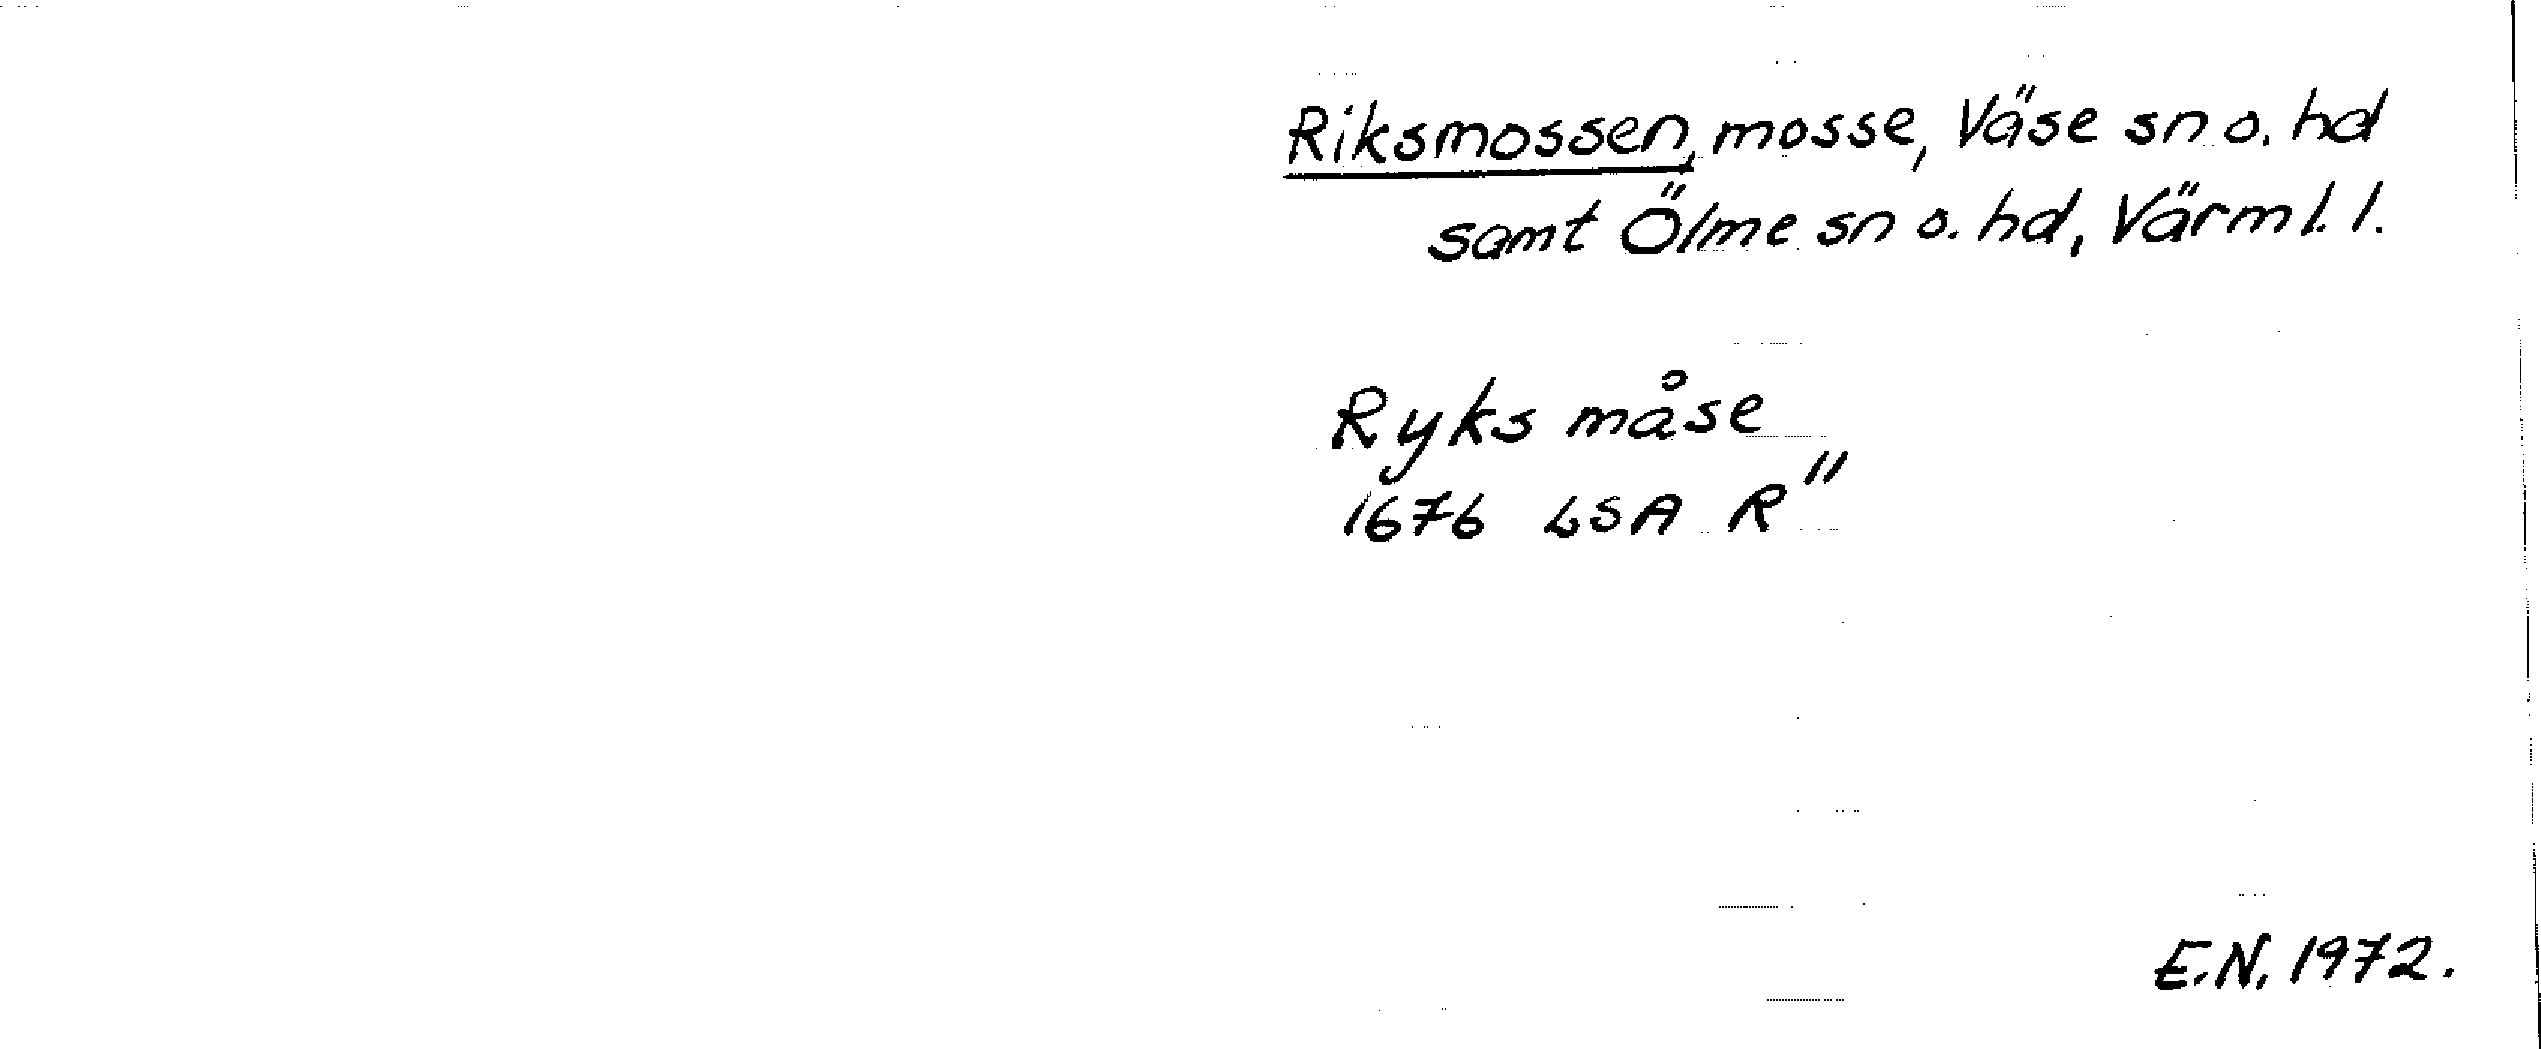 Riksmossen, mosse, Väse sn o. hd
samt Ölme sn o. hd, Värml. l.
Ryks måse
1676 LSA R"
E.N. 1972.